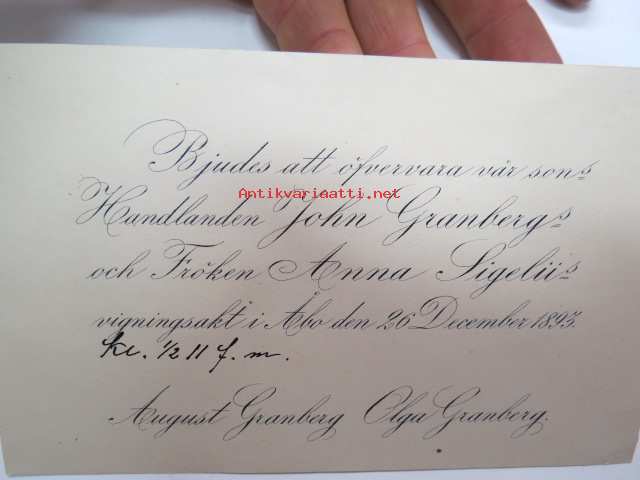 Bjudes att öfvervara vår sons
Antikvariaatti.net
Handlanden John Granbergs
och Fröken Anna Sigelii's
vigningsakt i Åbo den 26 December 1893.
kl. 1/2 11 f. m.
August Granberg Olga Granberg.